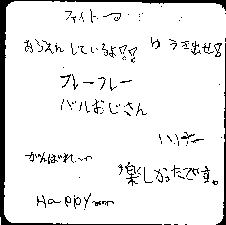 ファイトー
おうえんしているよ!!
ゆうき出せ!
フレーフレー
バルおじさん
がんばれ〜
楽しかったです。
HAPPY〜